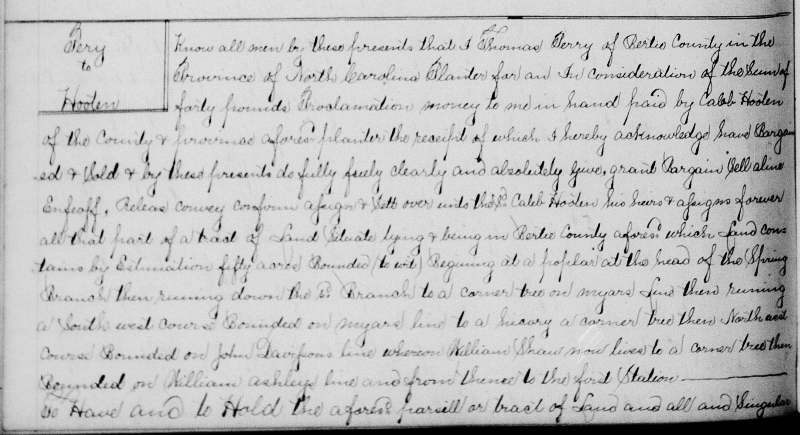 Pery
to
Hooten
Know all men by these presents that I Thomas Perry of Bertie County in the
Province of North Carolina Planter for an In consideration of the Sum of
forty pounds Proclamation money to me in hand paid by Caleb Hooten
of the County & province aforesd planter the receipt of which I hereby acknowledge have Bargain
ed & Sold & by these presents do fully freely clearly and absolutely Give, grant Bargain Sell aline
Enfeoff, Releas convey conform assign & Sett over unto the sd Caleb Hooten his heirs & assigns forever
all that part of a tract of Land Situate lying & being in Bertie County aforesd which Land con
tains by Estimation fifty acres Bounded (to wit) Begining at a poplar at the head of the Spring
Branch then runing down the sd Branch to a corner tree on myars line then runing
a South west course Bounded on myars line to a hicory a corner tree then North east
course Bounded on John Davissons line whereon William Shaw now lives to a corner tree then
Bounded on William ashley line and from thence to the first Station
To Have and to Hold the aforesd parsell or tract of Land and all and Singular